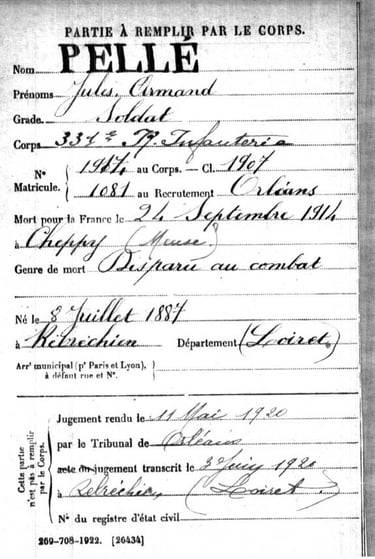 PARTIE À REMPLIR PAR LE CORPS.
Nom PELLÉ
Prénoms Jules, Armand
Grade Soldat
Corps 331e R. Infanterie
N° Matricule. { 01917 au Corps. — Cl. 1907
1081 au Recrutement Orléans
Mort pour la France le 24 Septembre 1914
à Cheppy (Meuse)
Genre de mort Disparu au combat
Né le 8 Juillet 1887
à Rebréchien Département (Loiret)
Arrt municipal (pr Paris et Lyon),
à défaut rue et N°.
Cette partie n'est pas à remplir par le Corps.
Jugement rendu le 11 Mai 1920
par le Tribunal de Orléans
acte ou jugement transcrit le 3 Juin 1920
à Rebréchien (Loiret)
N° du registre d'état civil
269-708-1922. [26434]